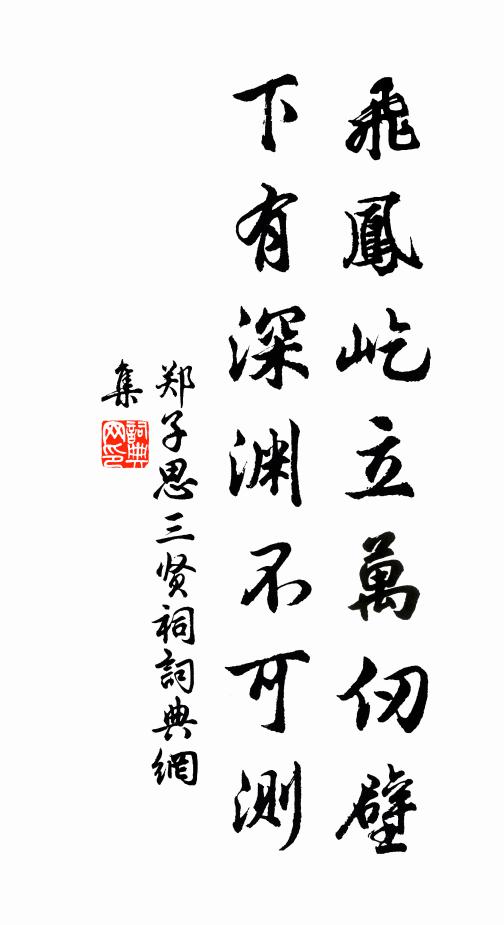 飛鳳屹立萬仞壁
下有深渊不可測
郑子思三贤祠詞典網
集
詞典
网印